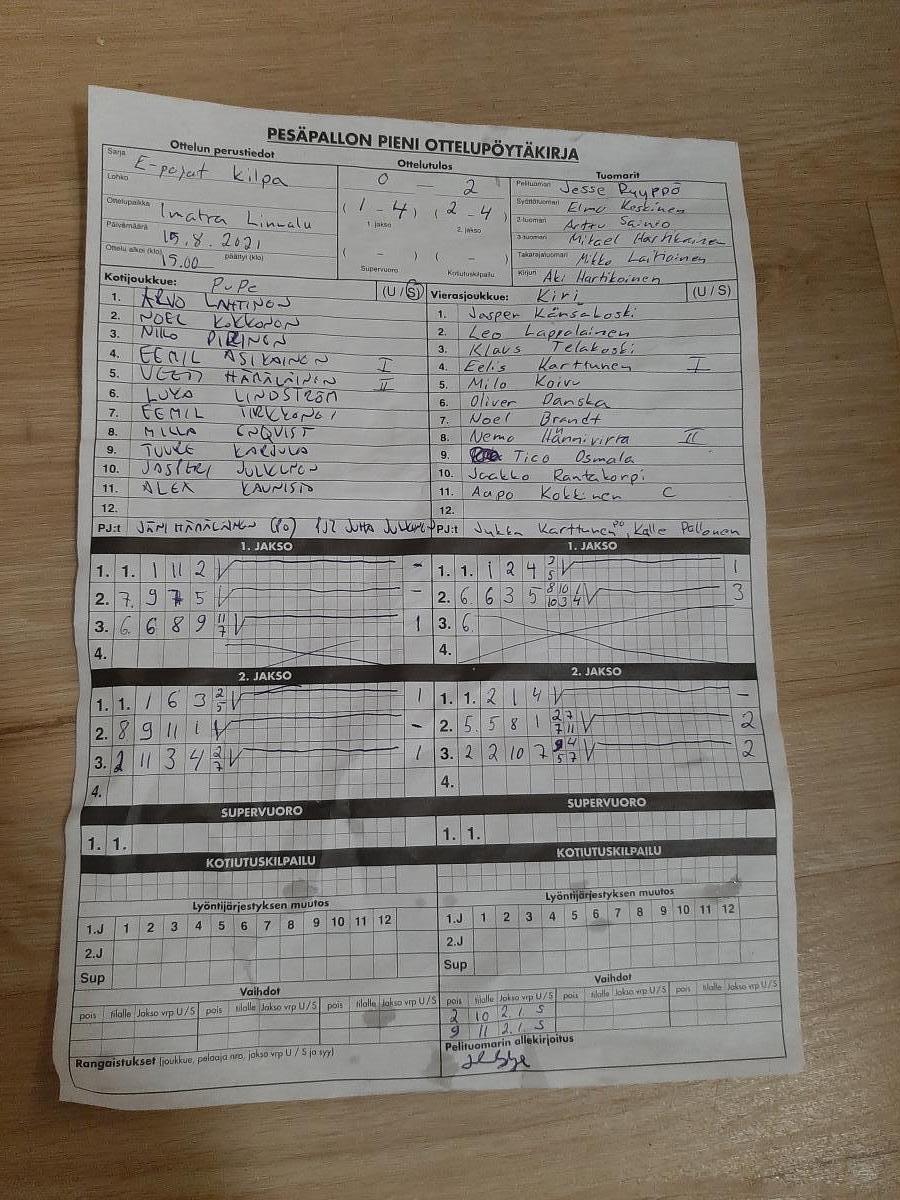 PESÄPALLON PIENI OTTELUPÖYTÄKIRJA
Ottelun perustiedot
Ottelutulos
Tuomarit
Sarja E-pojat Kilpa
Lohko
Ottelupaikka Imatra Linnalu
Päivämäärä 15.8.2021
Ottelu alkoi (klo) 15.00 päättyi (klo)
0 — 2
( 1 - 4 ) ( 2 - 4 )
1. jakso 2. jakso
( - ) ( - )
Supervuoro Kotiutuskilpailu
Pelituomari Jesse Ryyppö
Syöttötuomari Elmo Koskinen
2-tuomari Arttu Sainio
3-tuomari Mikael Hartikainen
Takarajatuomari Mikko Laitiainen
Kirjuri Aki Hartikainen
Kotijoukkue: PuPe (U / S)
1. ARVO LAHTINEN
2. NOEL KOKKONEN
3. NIILO PIRINEN
4. EEMIL ASIKAINEN I
5. VEETI HÄMÄLÄINEN II
6. LUKA LINDSTRÖM
7. EEMIL TIRKKONEN
8. MILLA ENQVIST
9. TUURE KARJULA
10. JASPERI JULKUNEN
11. ALEX KAUNISTO
12.
PJ:t JANI HÄMÄLÄINEN (PO) PJ2 JUHA JULKUNEN
Vierasjoukkue: Kiri (U / S)
1. Jasper Känsäkoski
2. Leo Lappalainen
3. Klaus Telakoski
4. Eelis Karttunen I
5. Milo Koivu
6. Oliver Danska
7. Noel Brandt
8. Nemo Hännivirta II
9. Tico Osmala
10. Jaakko Rantakorpi
11. Aapo Kokkinen C
12.
PJ:t Jukka Karttunen PO, Kalle Pallonen
1. JAKSO
1. 1. 1 11 2 -
2. 7. 9 7 5 -
3. 6. 6 8 9 11 7 1
4.
1. JAKSO
1. 1. 1 2 4 3 5 1
2. 6. 6 3 5 8 10 10 3 1 4 3
3. 6.
4.
2. JAKSO
1. 1. 1 6 3 2 5 1
2. 8 9 11 1 -
3. 2 11 3 4 2 7 1
4.
2. JAKSO
1. 1. 2 1 4 -
2. 5. 5 8 1 2 7 7 11 2
3. 2 2 10 7 9 4 5 7 2
4.
SUPERVUORO
1. 1.
SUPERVUORO
1. 1.
KOTIUTUSKILPAILU
KOTIUTUSKILPAILU
Lyöntijärjestyksen muutos
1.J 1 2 3 4 5 6 7 8 9 10 11 12
2.J
Sup
Lyöntijärjestyksen muutos
1.J 1 2 3 4 5 6 7 8 9 10 11 12
2.J
Sup
Vaihdot
pois tilalle Jakso vrp U / S pois tilalle Jakso vrp U / S pois tilalle Jakso vrp U / S
Vaihdot
pois tilalle Jakso vrp U / S pois tilalle Jakso vrp U / S pois tilalle Jakso vrp U / S
2 10 2.1 S
9 11 2.1 S
Rangaistukset (joukkue, pelaaja nro, jakso vrp U / S ja syy)
Pelituomarin allekirjoitus